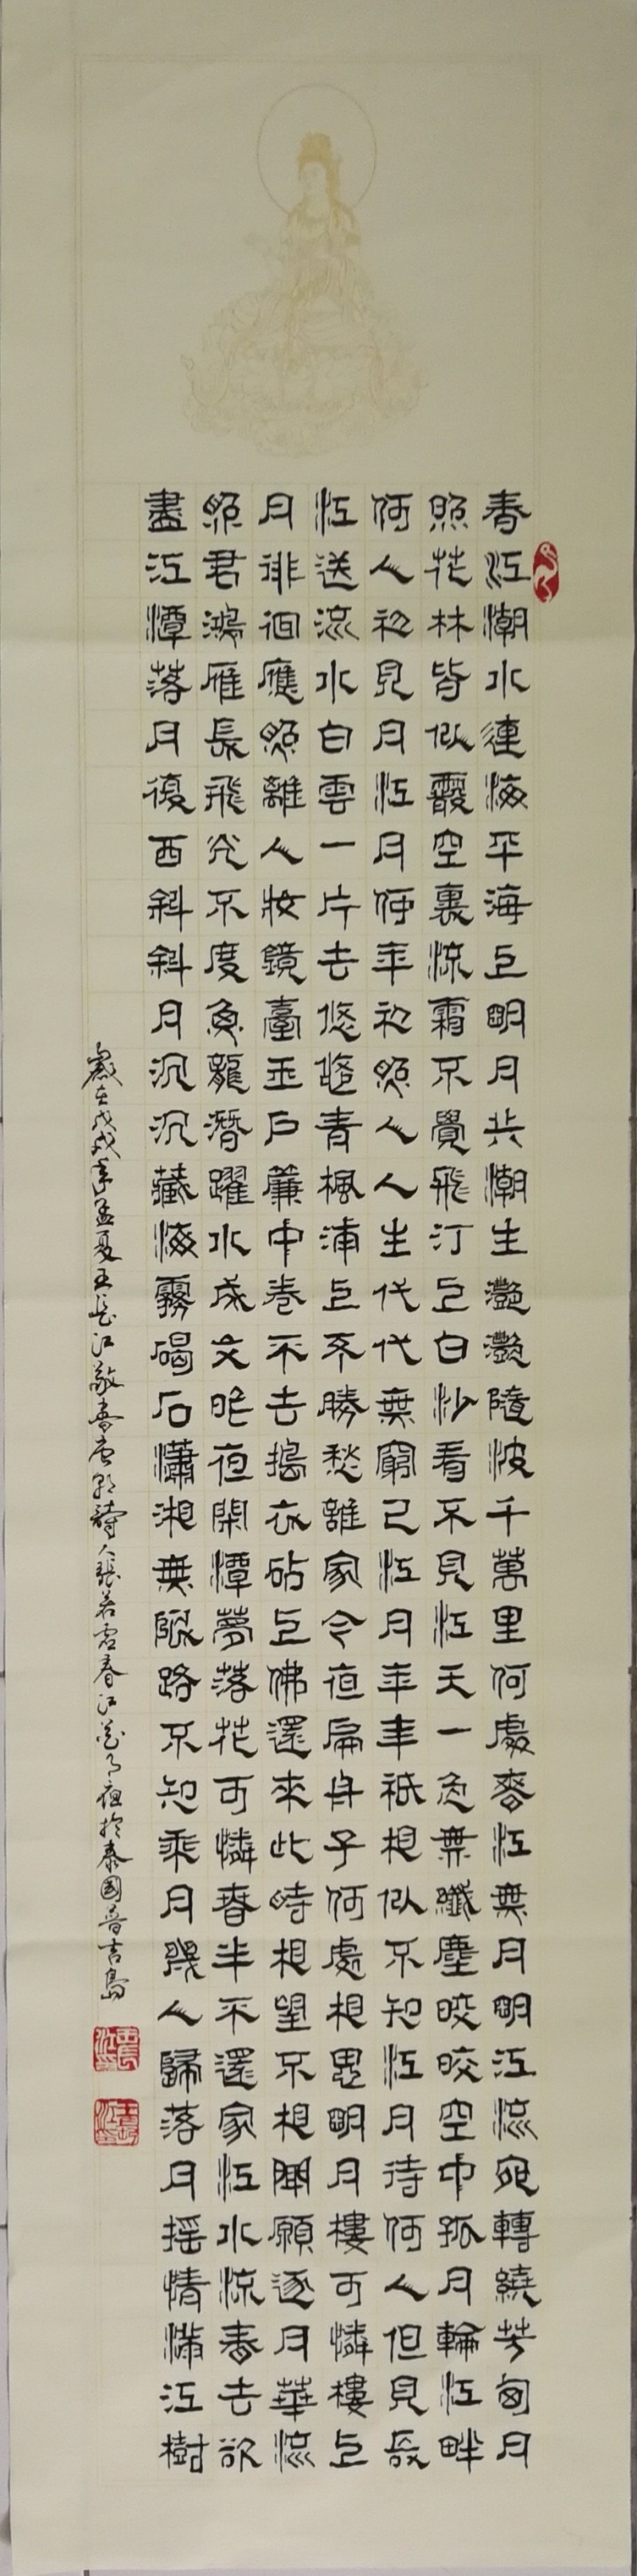 春江潮水連海平海上明月共潮生灔灔隨波千萬里何處春江無月明江流宛轉繞芳甸月
照花林皆似霰空裏流霜不覺飛汀上白沙看不見江天一色無纖塵皎皎空中孤月輪江畔
何人初見月江月何年初照人人生代代無窮已江月年年祇相似不知江月待何人但見長
江送流水白雲一片去悠悠青楓浦上不勝愁誰家今夜扁舟子何處相思明月樓可憐樓上
月徘徊應照離人妝鏡臺玉戶簾中卷不去搗衣砧上拂還來此時相望不相聞願逐月華流
照君鴻雁長飛光不度魚龍潛躍水成文昨夜閑潭夢落花可憐春半不還家江水流春去欲
盡江潭落月復西斜斜月沉沉藏海霧碣石瀟湘無限路不知乘月幾人歸落月搖情滿江樹
歲在戊戌年孟夏王長江敬書唐朝詩人張若虛春江花月夜於泰國普吉島